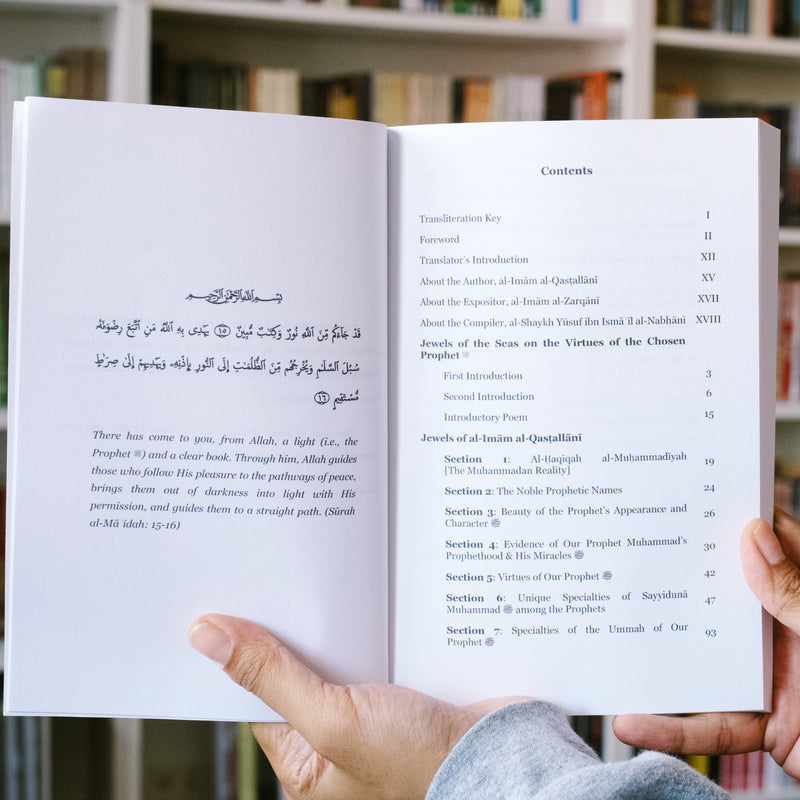 بسم الله الرحمن الرحيم
قَدْ جَاءَكُم مِّنَ اللَّهِ نُورٌ وَكِتَابٌ مُّبِينٌ ١٥ يَهْدِي بِهِ اللَّهُ مَنِ اتَّبَعَ رِضْوَانَهُ
سُبُلَ السَّلَامِ وَيُخْرِجُهُم مِّنَ الظُّلُمَاتِ إِلَى النُّورِ بِإِذْنِهِ وَيَهْدِيهِمْ إِلَىٰ صِرَاطٍ
مُّسْتَقِيمٍ ١٦
There has come to you, from Allah, a light (i.e., the
Prophet ﷺ) and a clear book. Through him, Allah guides
those who follow His pleasure to the pathways of peace,
brings them out of darkness into light with His
permission, and guides them to a straight path. (Sūrah
al-Māʾidah: 15-16)
Contents
Transliteration Key I
Foreword II
Translator's Introduction XII
About the Author, al-Imām al-Qasṭallānī XV
About the Expositor, al-Imām al-Zarqānī XVII
About the Compiler, al-Shaykh Yūsuf ibn Ismāʿīl al-Nabhānī XVIII
Jewels of the Seas on the Virtues of the Chosen
Prophet ﷺ
First Introduction 3
Second Introduction 6
Introductory Poem 15
Jewels of al-Imām al-Qasṭallānī
Section 1: Al-Ḥaqīqah al-Muḥammadīyah
[The Muhammadan Reality] 19
Section 2: The Noble Prophetic Names 24
Section 3: Beauty of the Prophet's Appearance and
Character ﷺ 26
Section 4: Evidence of Our Prophet Muhammad's
Prophethood & His Miracles ﷺ 30
Section 5: Virtues of Our Prophet ﷺ 42
Section 6: Unique Specialties of Sayyidunā
Muhammad ﷺ among the Prophets 47
Section 7: Specialties of the Ummah of Our
Prophet ﷺ 93